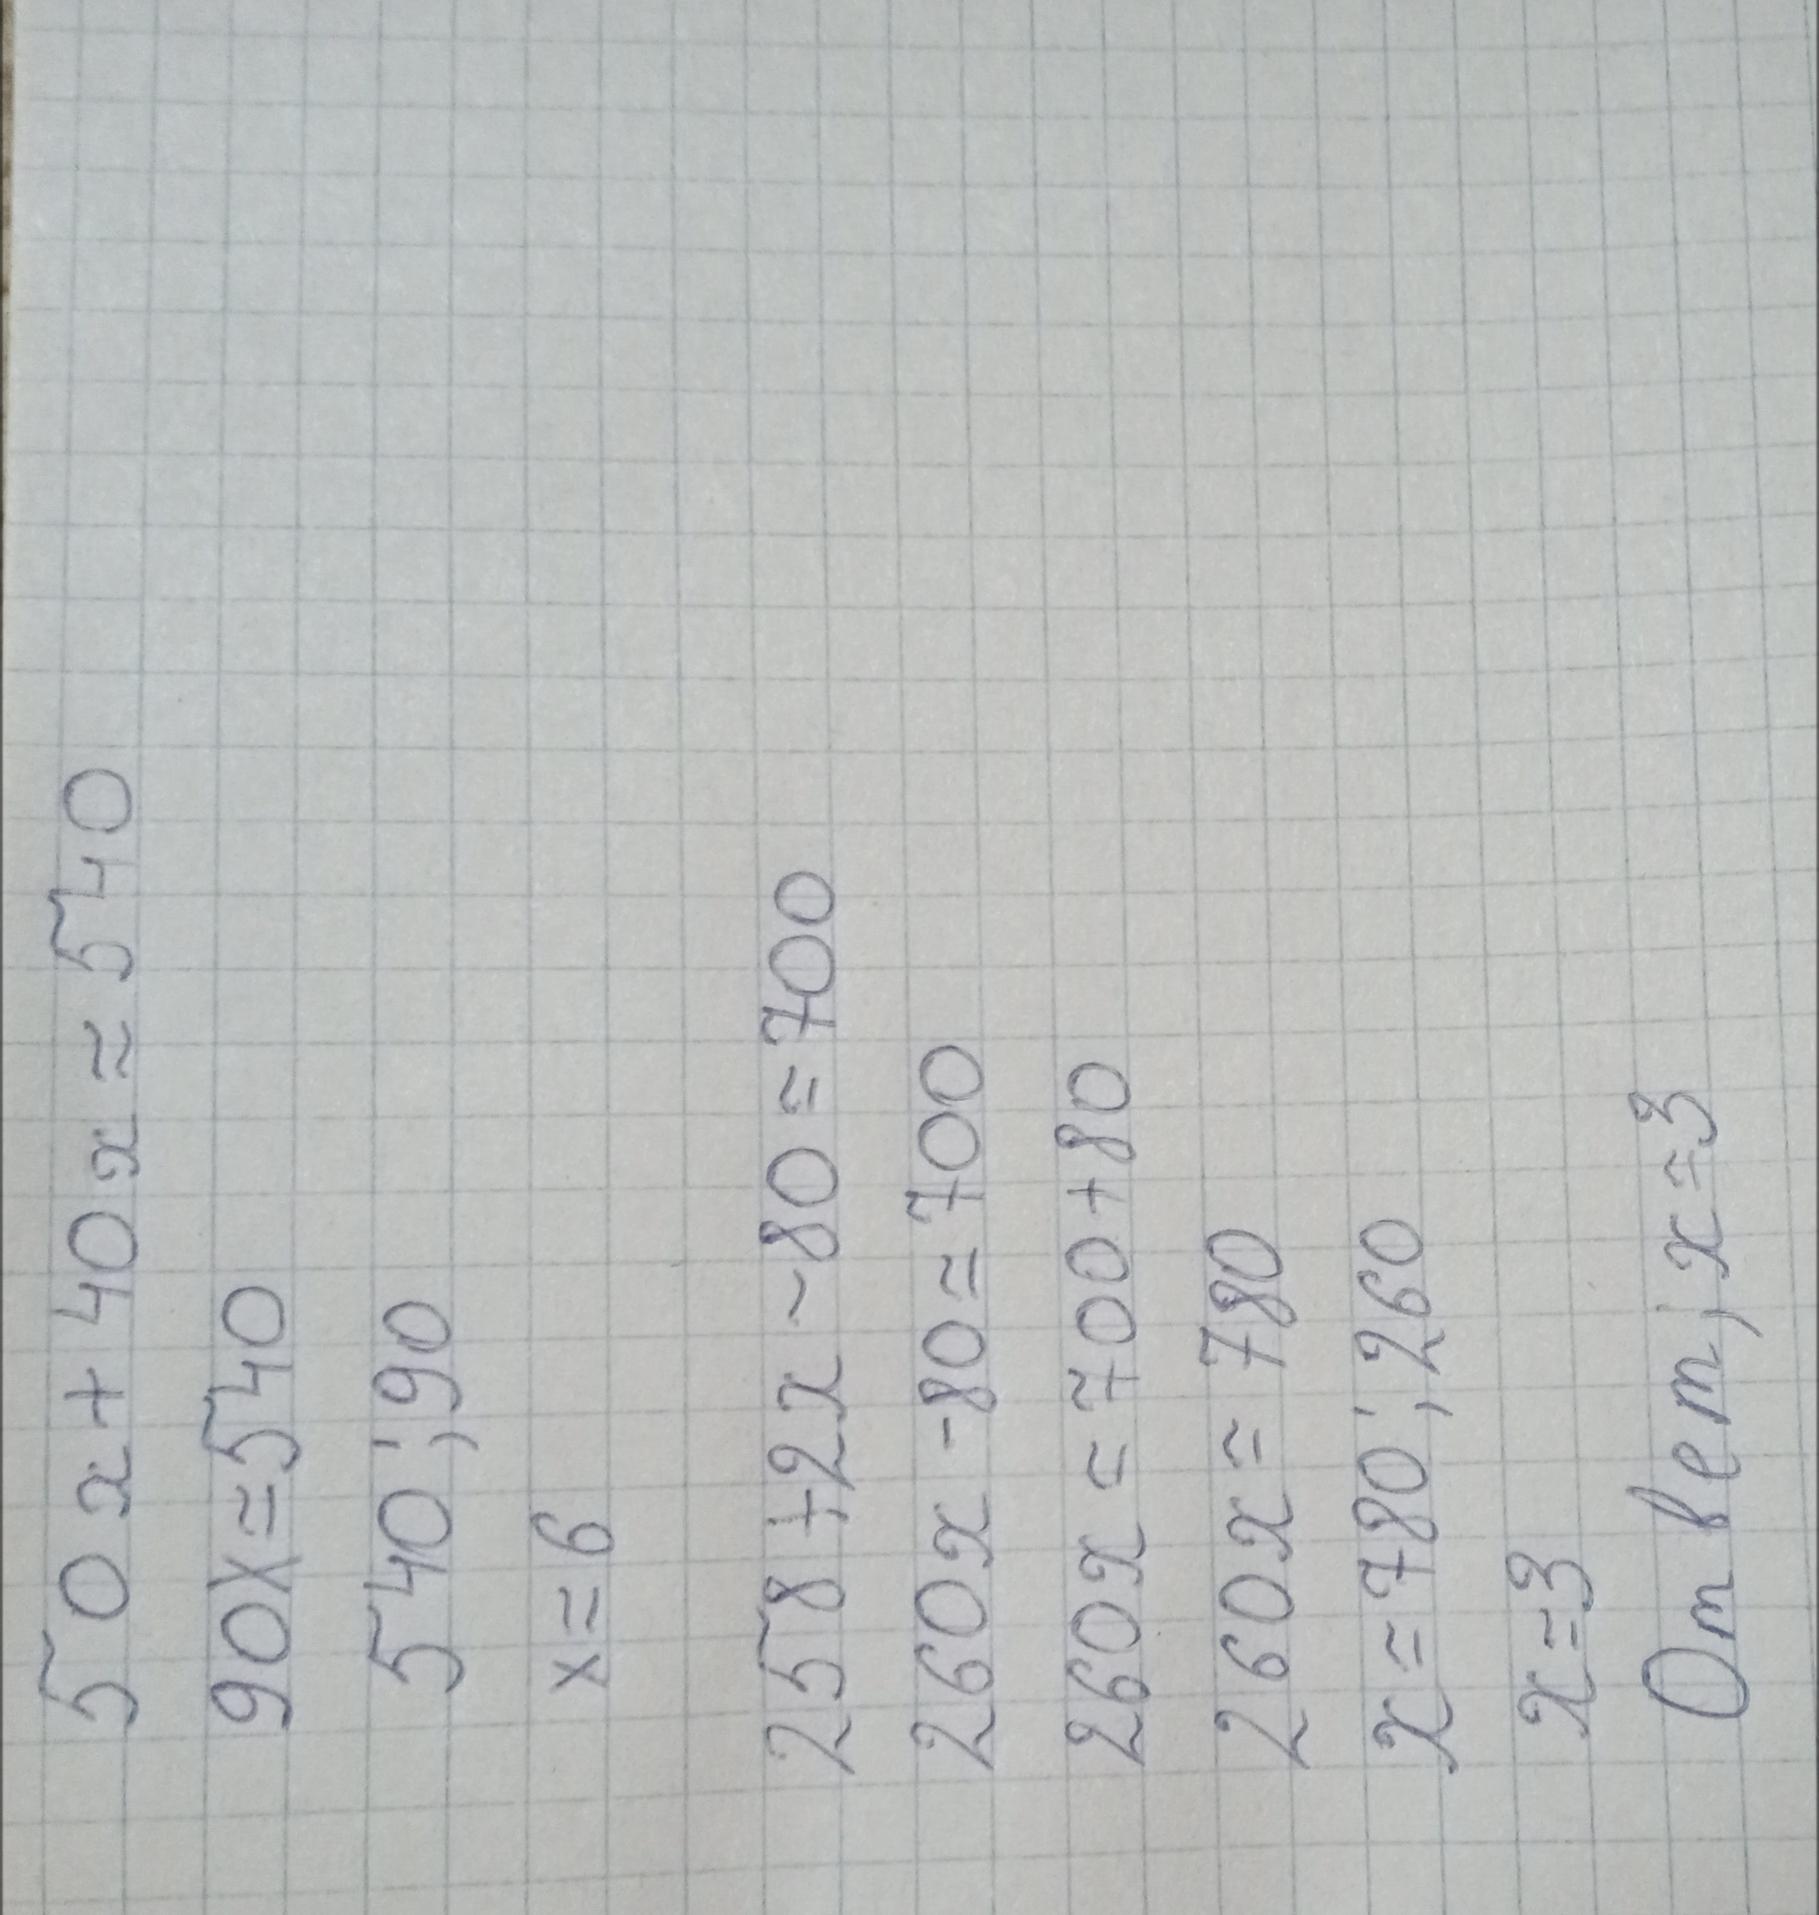 50x+40x=540
90x=540
540:90
x=6
258+2x-80=700
260x-80=700
260x=700+80
260x=780
x=780:260
x=3
Ответ: x=3